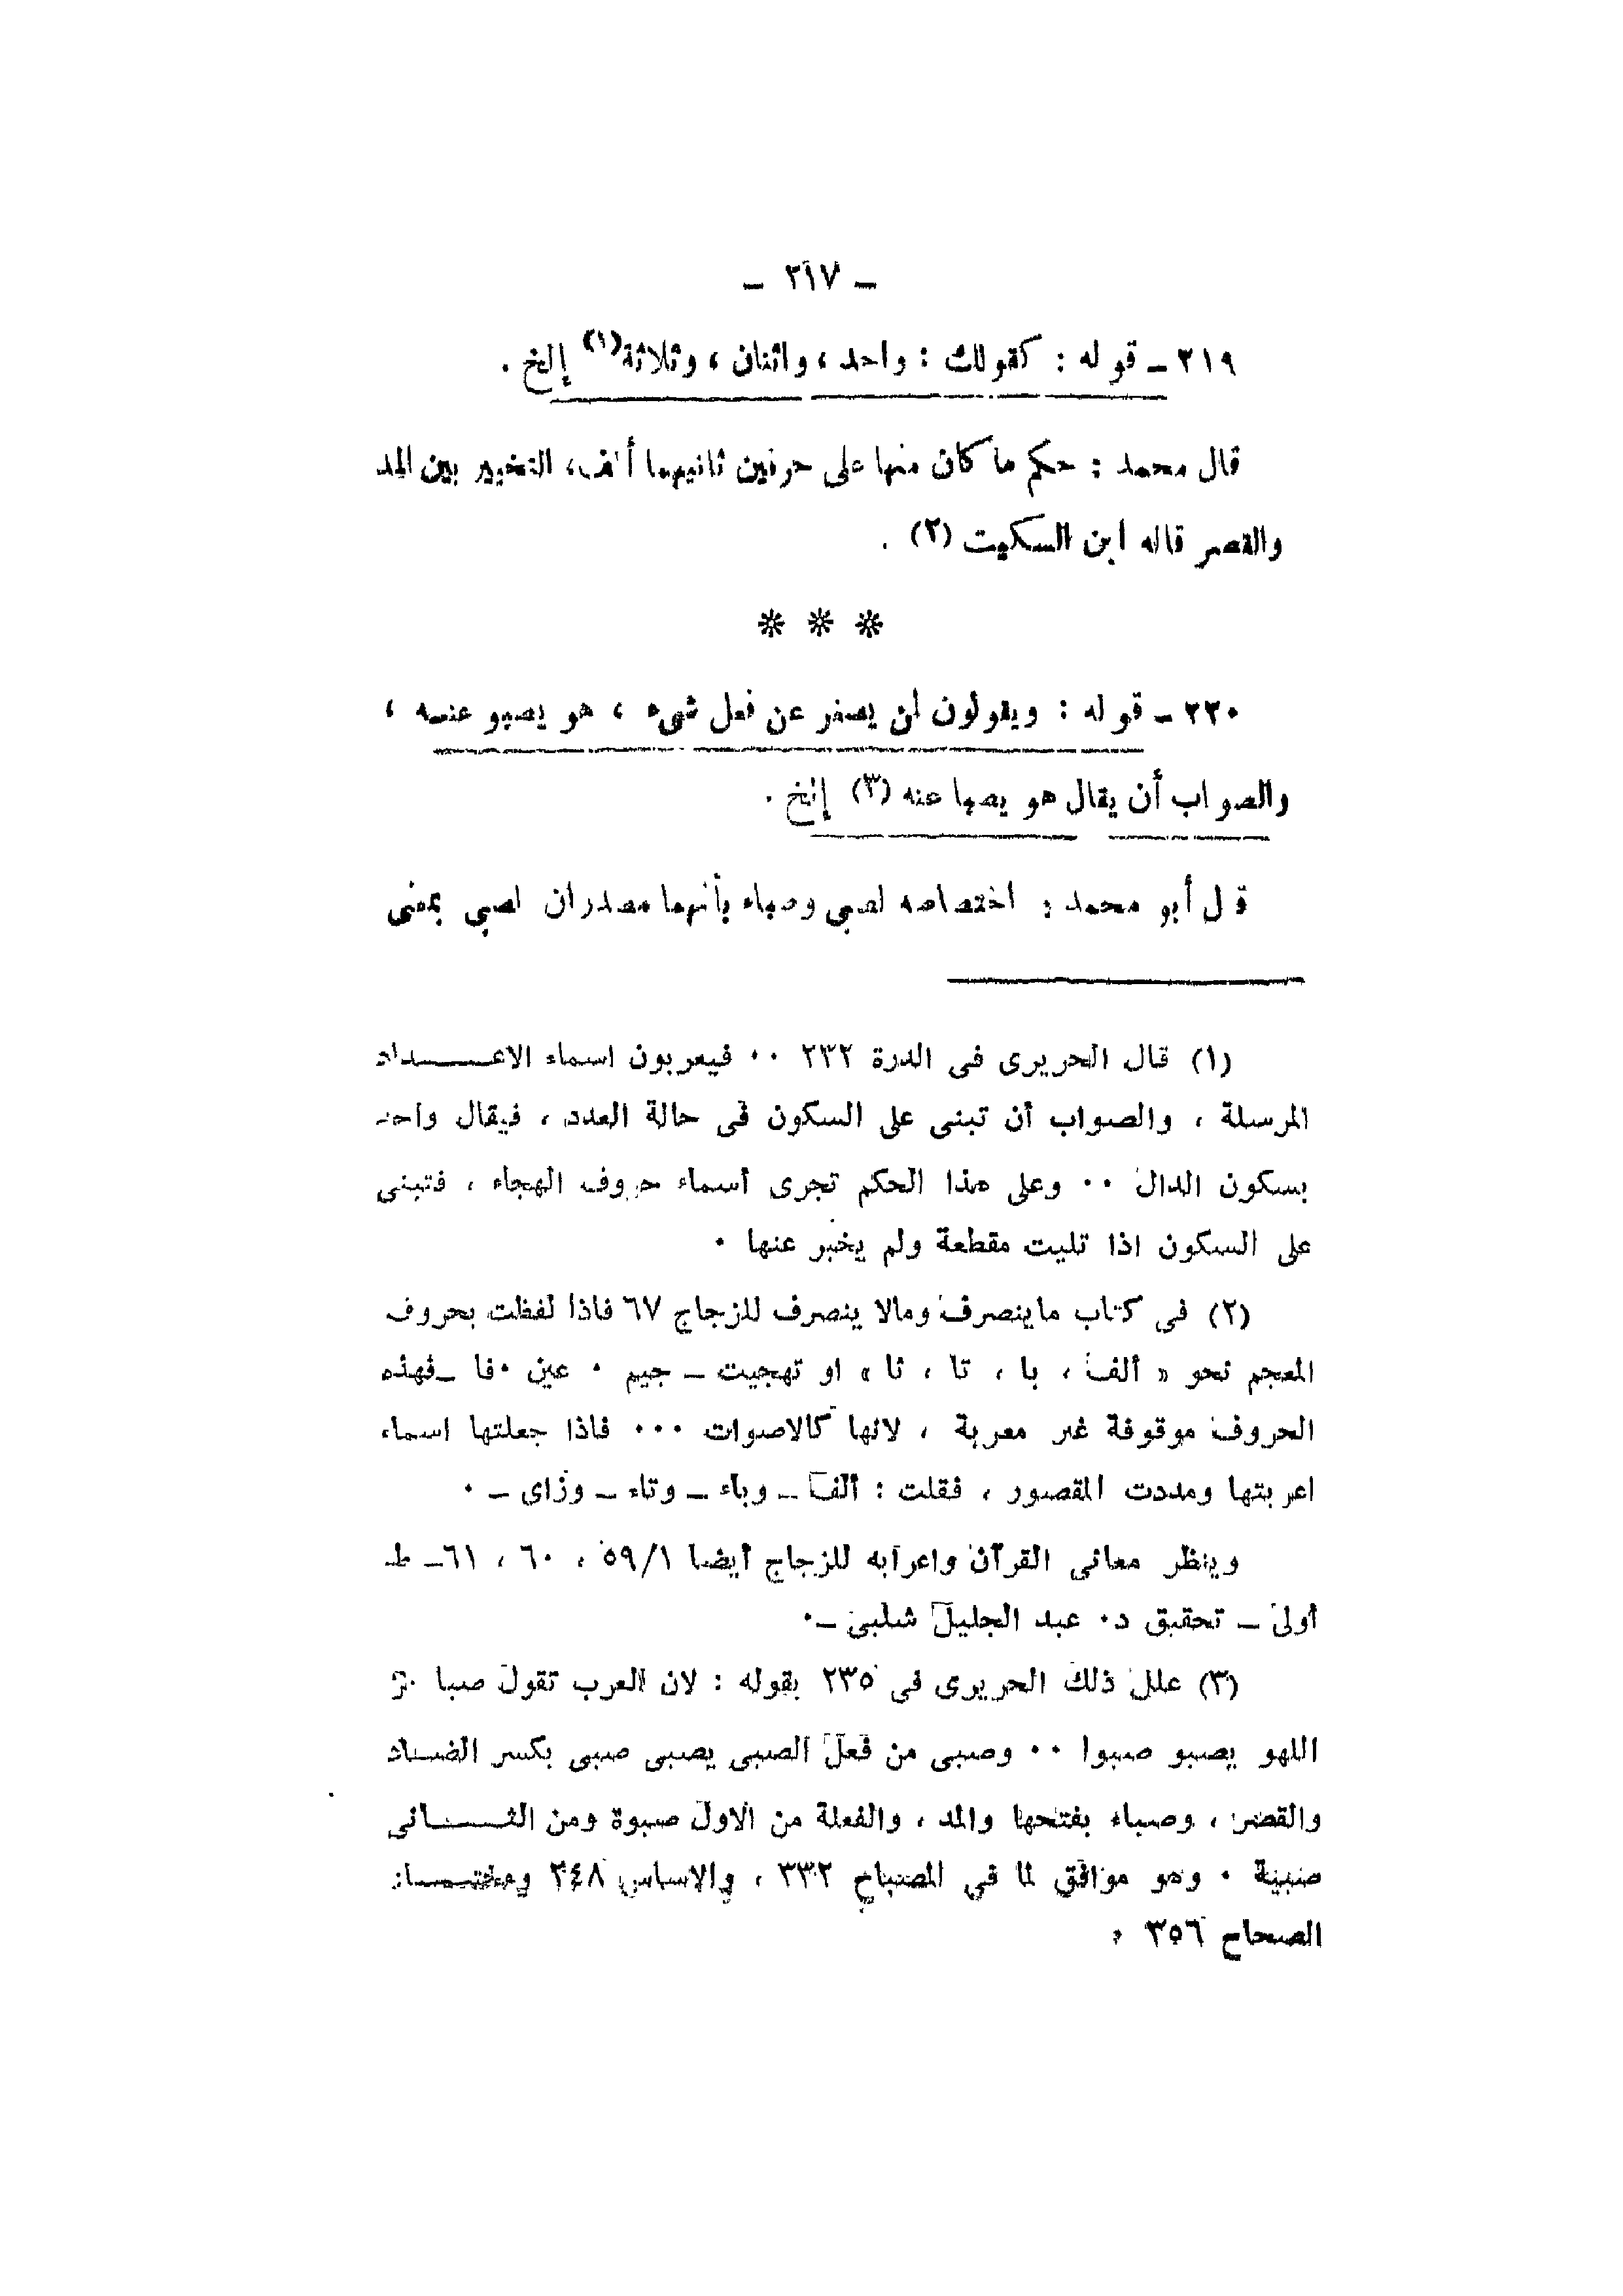 — ٢١٧ —
٢١٩ — قوله : كقولك : واحد ، واثنان ، وثلاثة(١) إلخ .
قال محمد : حكم ما كان منها على حرفين ثانيهما ألف، التخيير بين المد
والقصر قاله ابن السكيت (٢) .
* * *
٢٢٠ — قوله : ويقولون لمن يصغر عن فعل شىء ، هو يصبو عنه ،
والصواب أن يقال هو يصبا عنه (٣) إلخ .
قال أبو محمد : اختصاصه لصبى وصباء بأنهما مصدران لصبى بمعنى
(١) قال الحريرى فى الدرة ٢٣٢ ٠٠ فيعربون اسماء الاعـــداد
المرسلة ، والصواب أن تبنى على السكون فى حالة العدد ، فيقال واحد
بسكون الدال ٠٠ وعلى هذا الحكم تجرى أسماء حروف الهجاء ، فتبنى
على السكون اذا تليت مقطعة ولم يخبر عنها ٠
(٢) فى كتاب ماينصرف ومالا ينصرف للزجاج ٦٧ فاذا لفظت بحروف
المعجم نحو « ألف ، با ، تا ، ثا » او تهجيت — جيم ٠ عين ٠ فا — فهذه
الحروف موقوفة غير معربة ، لانها كالاصوات ٠٠٠ فاذا جعلتها اسماء
اعربتها ومددت المقصور ، فقلت : ألف — وباء — وتاء — وزاى — ٠
وينظر معانى القرآن واعرابه للزجاج أيضا ٥٩/١ ، ٦٠ ، ٦١ — ط
أولى — تحقيق د٠ عبد الجليل شلبى —٠
(٣) علل ذلك الحريرى فى ٢٣٥ بقوله : لان العرب تقول صبا
اللهو يصبو صبوا ٠٠ وصبى من فعل الصبى يصبى صبى بكسر الصاد
والقصر ، وصباء بفتحها والمد ، والفعلة من الاول صبوة ومن الثـــانى
صبية ٠ وهو موافق لما فى المصباح ٣٣٢ ، والاساس ٢٤٨ ومختـــار
الصحاح ٣٥٦ ٠